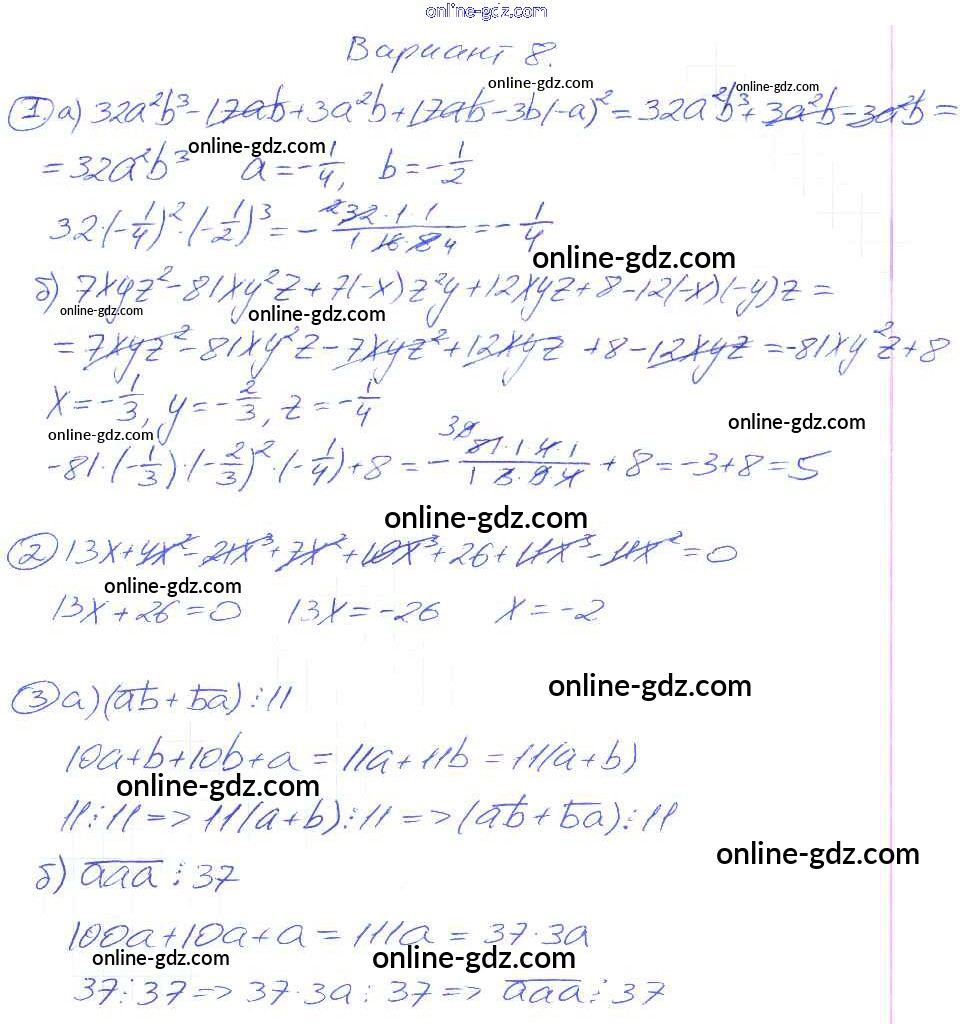 online-gdz.com
Вариант 8.
online-gdz.com online-gdz.com
1 а) 32a²b³ - 17ab + 3a²b + 17ab - 3b(-a)² = 32a²b³ + 3a²b - 3a²b =
online-gdz.com
= 32a²b³ a = -1/4, b = -1/2
32(-1/4)² · (-1/2)³ = - 2 32·1·1 / 1 16·8 4 = - 1/4
online-gdz.com
б) 7xyz² - 81xy²z + 7(-x)z²y + 12xyz + 8 - 12(-x)(-y)z =
online-gdz.com online-gdz.com
= 7xyz² - 81xy²z - 7xyz² + 12xyz + 8 - 12xyz = -81xy²z + 8
x = -1/3, y = -2/3, z = -1/4
online-gdz.com online-gdz.com
-81·(-1/3)·(-2/3)²·(-1/4) + 8 = - 81·1·4·1 / 1 3·9·4 + 8 = -3 + 8 = 5
online-gdz.com
2 13x + 4x² - 21x³ + 7x² + 10x³ + 26 + 11x³ - 11x² = 0
online-gdz.com
13x + 26 = 0 13x = -26 x = -2
online-gdz.com
3 а) (ab + ba) ⋮ 11
10a + b + 10b + a = 11a + 11b = 11(a + b)
online-gdz.com
11 ⋮ 11 => 11(a + b) ⋮ 11 => (ab + ba) ⋮ 11
online-gdz.com
б) aaa ⋮ 37
100a + 10a + a = 111a = 37·3a
online-gdz.com online-gdz.com
37 ⋮ 37 => 37·3a ⋮ 37 => aaa ⋮ 37